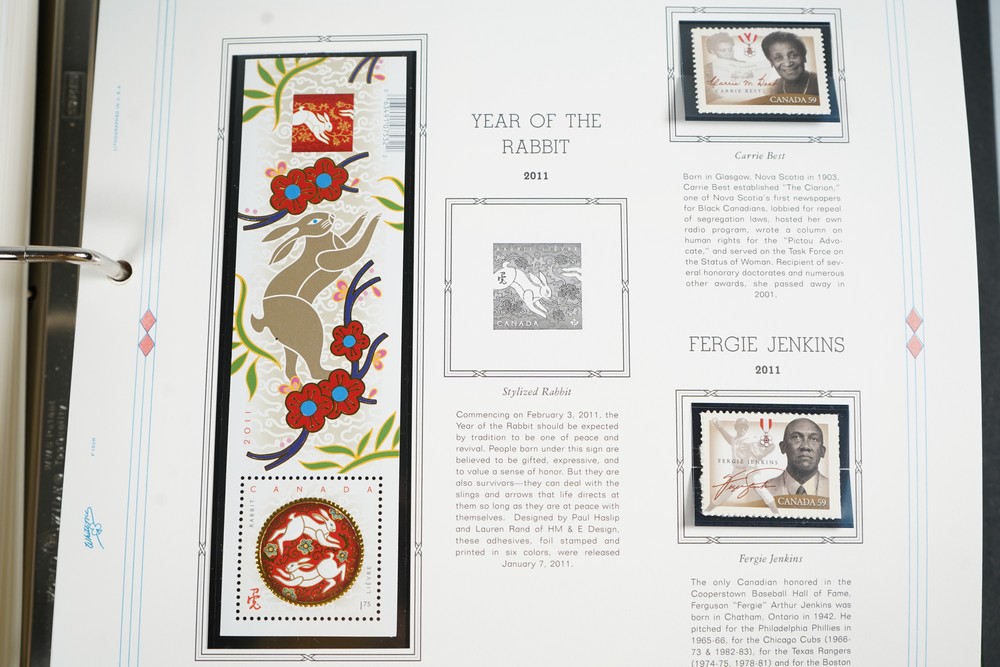 2011
CANADA
RABBIT
LIÈVRE
1.75
YEAR OF THE
RABBIT
2011
CANADA
P
Stylized Rabbit
Commencing on February 3, 2011, the
Year of the Rabbit should be expected
by tradition to be one of peace and
revival. People born under this sign are
believed to be gifted, expressive, and
to value a sense of honor. But they are
also survivors—they can deal with the
slings and arrows that life directs at
them so long as they are at peace with
themselves. Designed by Paul Haslip
and Lauren Rand of HM & E Design,
these adhesives, foil stamped and
printed in six colors, were released
January 7, 2011.
Carrie M. Best
CARRIE BEST
CANADA 59
Carrie Best
Born in Glasgow, Nova Scotia in 1903,
Carrie Best established "The Clarion,"
one of Nova Scotia's first newspapers
for Black Canadians, lobbied for repeal
of segregation laws, hosted her own
radio program, wrote a column on
human rights for the "Pictou Advo-
cate," and served on the Task Force on
the Status of Woman. Recipient of sev-
eral honorary doctorates and numerous
other awards, she passed away in
2001.
FERGIE JENKINS
2011
FERGIE JENKINS
CANADA 59
Fergie Jenkins
The only Canadian honored in the
Cooperstown Baseball Hall of Fame,
Ferguson "Fergie" Arthur Jenkins was
born in Chatham, Ontario in 1942. He
pitched for the Philadelphia Phillies in
1965-66, for the Chicago Cubs (1966-
73 & 1982-83), for the Texas Rangers
(1974-75, 1978-81) and for the Boston